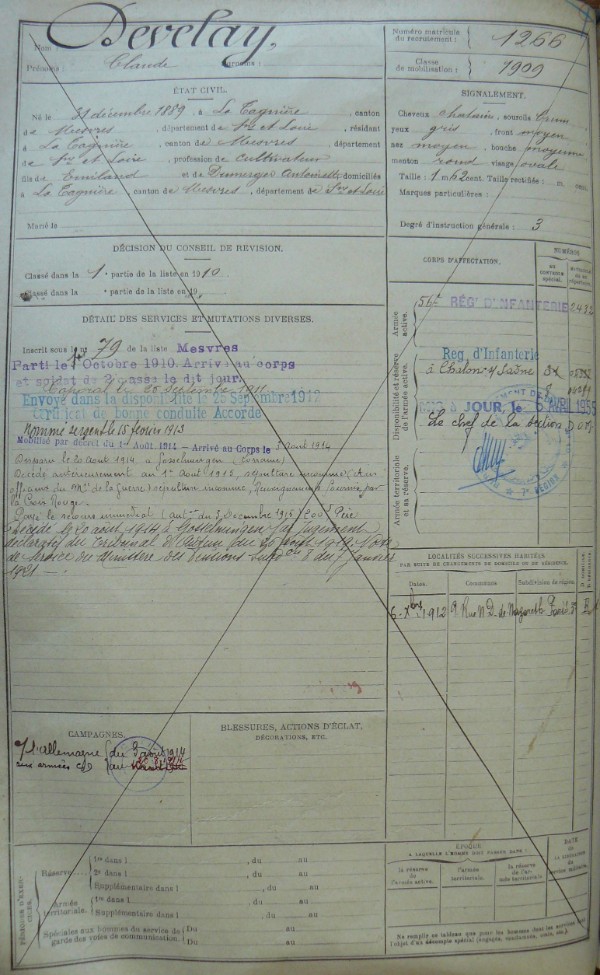 Nom : Develay,
Prénoms : Claude Surnoms :
Numéro matricule du recrutement : 1266
Classe de mobilisation : 1909
ÉTAT CIVIL.
Né le 31 décembre 1889, à La Tagnière, canton
de Mesvres, département de Sne et Loire, résidant
à La Tagnière, canton de Mesvres, département
de Sne et Loire, profession de Cultivateur
fils de Emiland et de Dumerger Antoinette domiciliés
à La Tagnière, canton de Mesvres, département de Sne et Loire
Marié le
SIGNALEMENT.
Cheveux chatain, sourcils brun
yeux gris, front moyen
nez moyen, bouche moyenne
menton rond visage ovale
Taille : 1 m. 62 cent. Taille rectifiée : m. cent.
Marques particulières :
Degré d'instruction générale : 3
DÉCISION DU CONSEIL DE RÉVISION.
Classé dans la 1e partie de la liste en 1910
Classé dans la e partie de la liste en 19
DÉTAIL DES SERVICES ET MUTATIONS DIVERSES.
Inscrit sous le no 79 de la liste Mesvres
Parti le 1er Octobre 1910. Arrivé au corps
et soldat de 2e classe le dit jour.
Caporal le 25 Septembre 1911
Envoyé dans la disponibilité le 25 Septembre 1912
Certificat de bonne conduite Accordé
Nommé sergent le 15 février 1913
Mobilisé par décret du 1er Août 1914 – Arrivé au Corps le 3 Août 1914
Disparu le 20 août 1914 à Gosselmingen (Lorraine)
Décédé antérieurement au 1er Août 1915, sépulture inconnue (Avis
officiel du Mre de la Guerre) sépulture inconnue, Renseignements fournis par
la Croix Rouge.
Payé le secours immédiat (aut. du 3 Décembre 1915) 200f Père
Décédé le 20 août 1914 à Gosselmingen
jugement
déclaratif du Tribunal d'Autun du 20 août 1919.
de service du Ministère des Pensions
du 7 janvier
1921
CORPS D'AFFECTATION.
NUMÉROS
au contrôle spécial.
Armée active.
56e RÉGt D'INFANTERIE
Disponibilité et réserve de l'armée active.
Rég. d'Infanterie
à Chalon s/ Saône
À JOUR, le 6 AVRIL 1955
Le Chef de la Section
7e RÉGION
Armée territoriale et sa réserve.
LOCALITÉS SUCCESSIVES HABITÉES
PAR SUITE DE CHANGEMENTS DE DOMICILE OU DE RÉSIDENCE.
Dates. Communes. Subdivisions de région.
6 Xbre 1912 9 Rue N.D. de Nazareth Paris
CAMPAGNES.
C/ l'Allemagne du 3 août 1914
aux armées
BLESSURES, ACTIONS D'ÉCLAT,
DÉCORATIONS, ETC.
PÉRIODES D'EXERCICES.
Réserve
1re dans l , du au
2e dans l , du au
Supplémentaire dans l , du au
Armée territoriale.
1re dans l , du au
Supplémentaire dans l , du au
Spéciales aux hommes du service de garde des voies de communication.
Du au
Du au
ÉPOQUE
À LAQUELLE L'HOMME DOIT PASSER DANS :
la réserve de l'armée active.
l'armée territoriale.
la réserve de l'armée territoriale.
DATE
de la
LIBÉRATION
du
service militaire.
Ne remplir ce tableau que pour les hommes dont les services font
l'objet d'un décompte spécial (engagés, condamnés, omis, etc.)